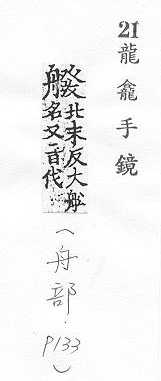 21 龍龕手鏡
北末反大船
名又音代
(舟部 P133)